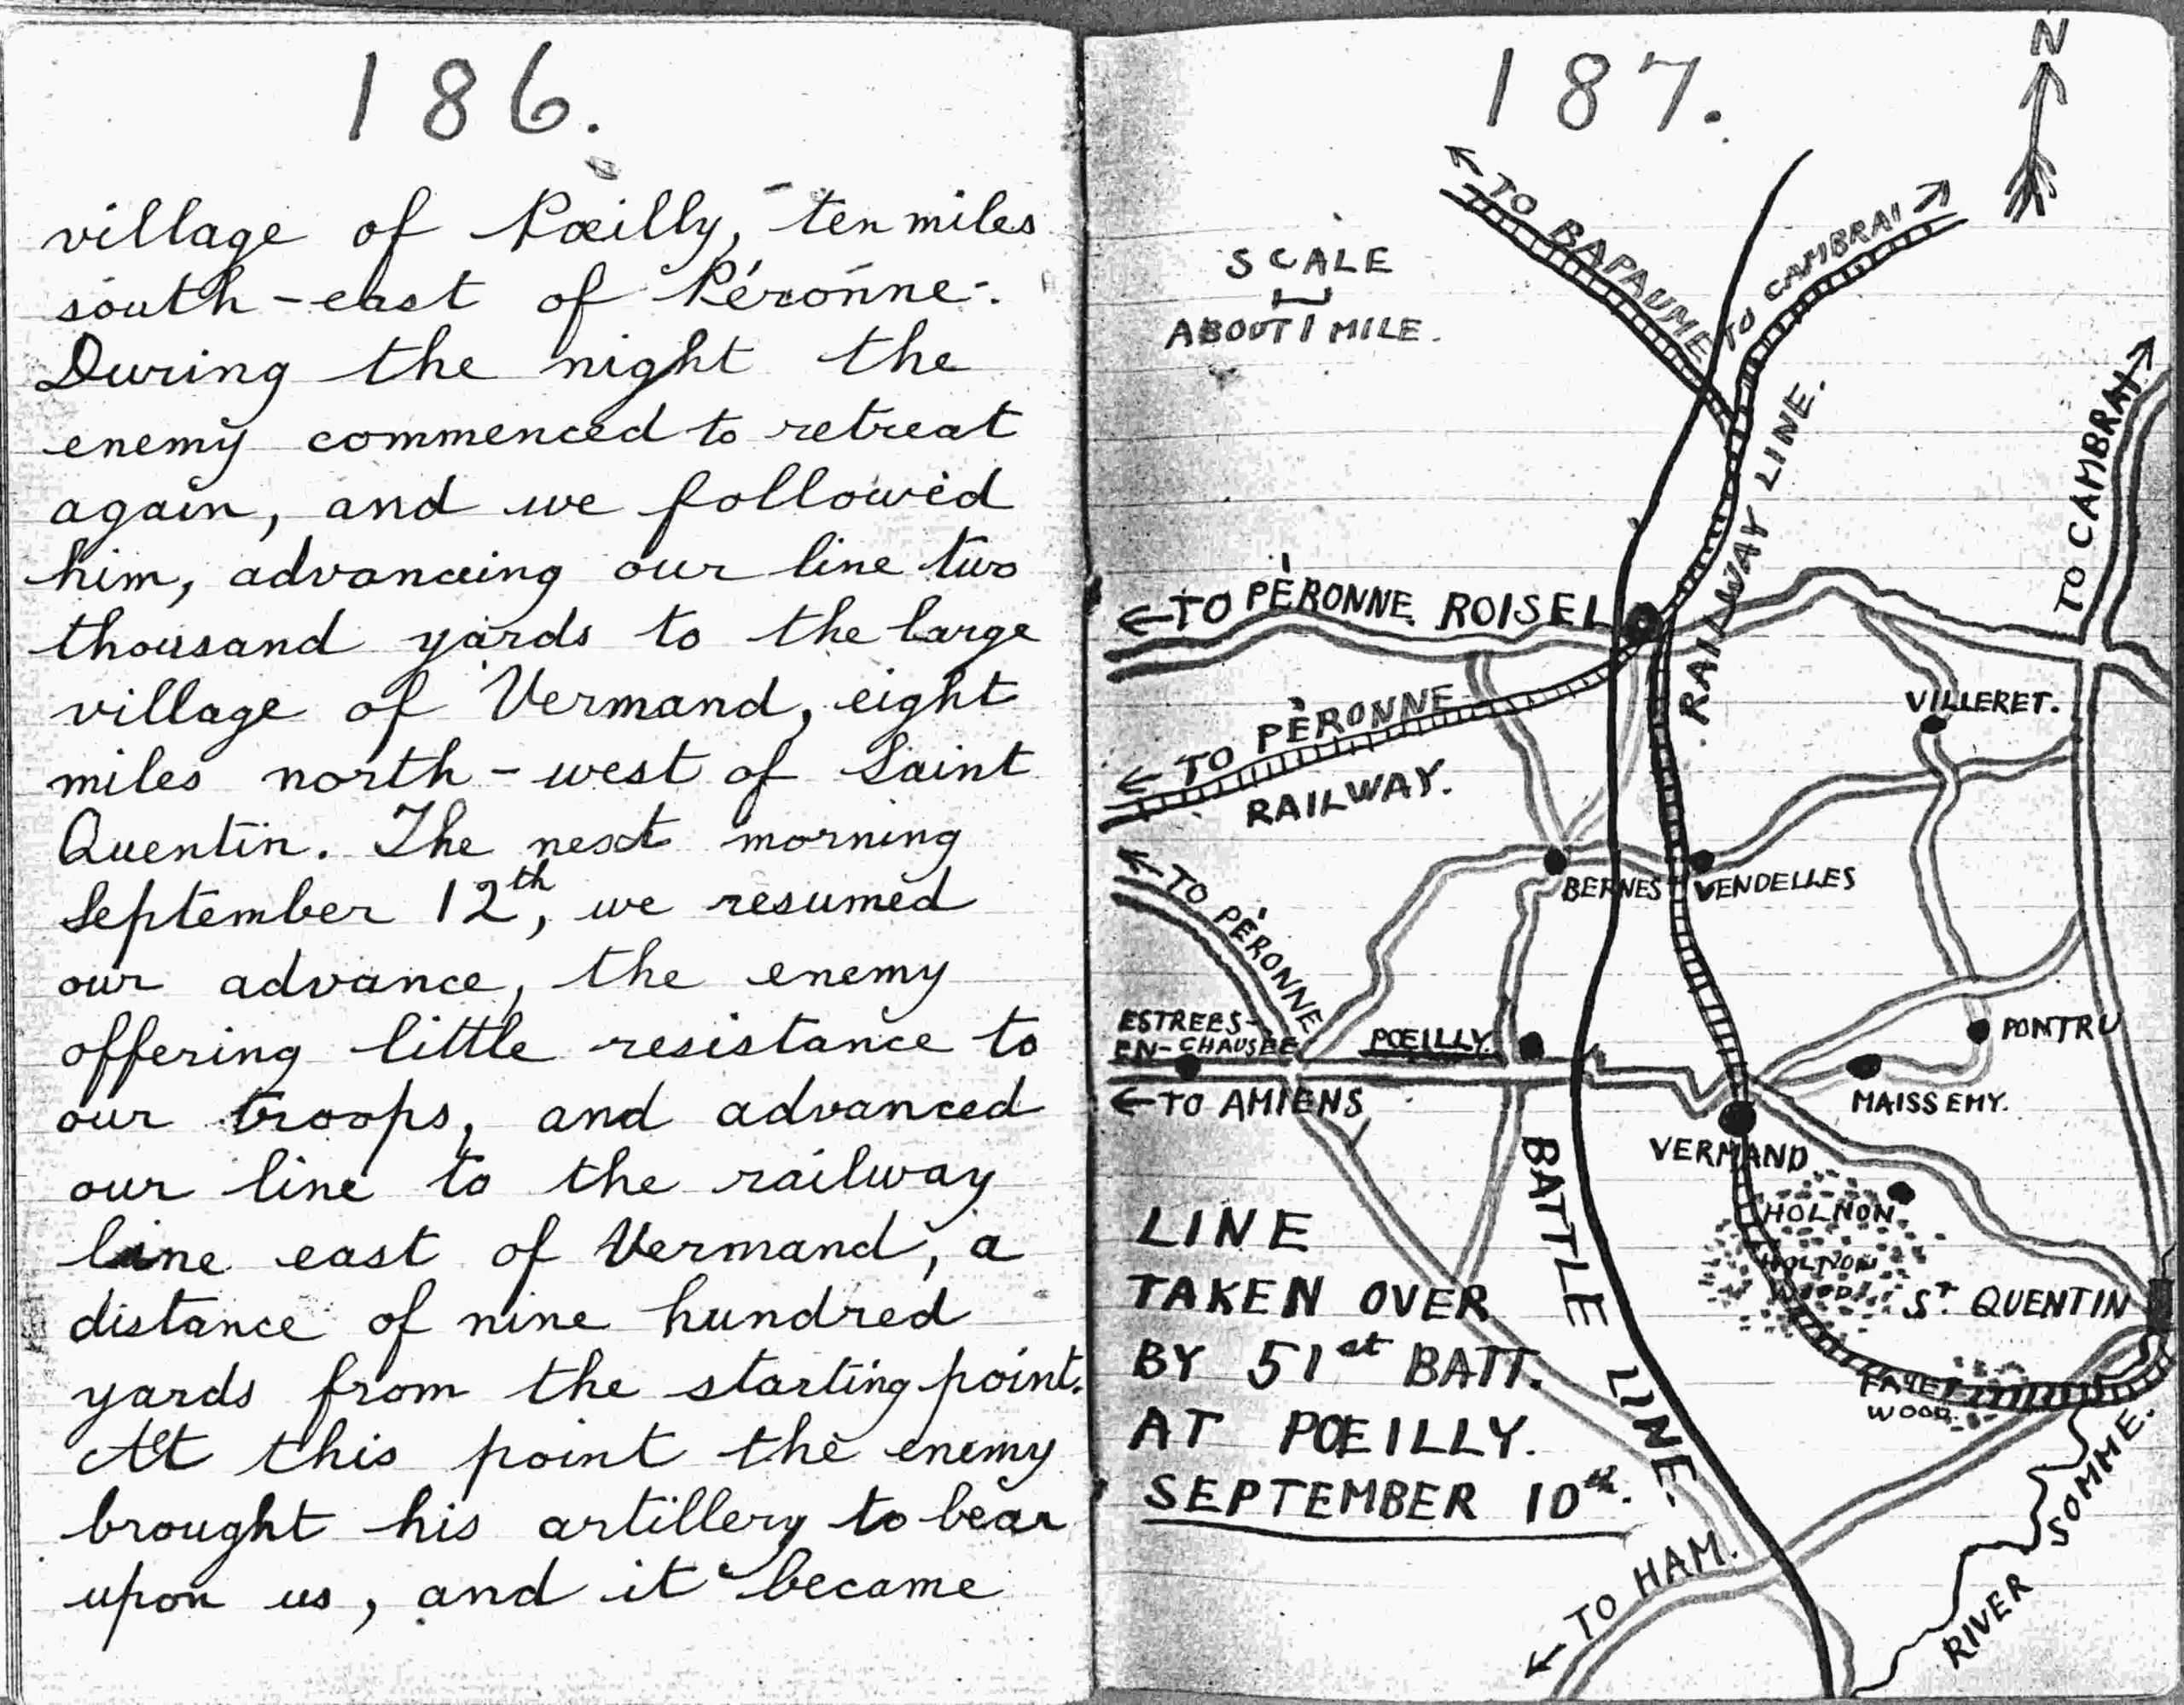 186.
village of Pœilly, ten miles
south-east of Péronne.
During the night the
enemy commenced to retreat
again, and we followed
him, advancing our line two
thousand yards to the large
village of Vermand, eight
miles north-west of Saint
Quentin. The next morning
September 12th, we resumed
our advance, the enemy
offering little resistance to
our troops, and advanced
our line to the railway
line east of Vermand, a
distance of nine hundred
yards from the starting point.
At this point the enemy
brought his artillery to bear
upon us, and it became
187.
N
TO BAPAUME
TO CAMBRAI
SCALE
ABOUT 1 MILE.
TO CAMBRAI
RAILWAY LINE.
TO PÉRONNE
ROISEL
TO PÉRONNE
RAILWAY.
VILLERET.
BERNES
VENDELLES
TO PÉRONNE
ESTREES-
EN-CHAUSEE
POEILLY.
PONTRU
TO AMIENS
MAISSEMY.
VERMAND
HOLNON
HOLNON
WOOD
ST QUENTIN
BATTLE LINE.
LINE
TAKEN OVER
BY 51st BATT.
AT PŒILLY.
SEPTEMBER 10th.
FAYET
WOOD.
TO HAM.
RIVER SOMME.